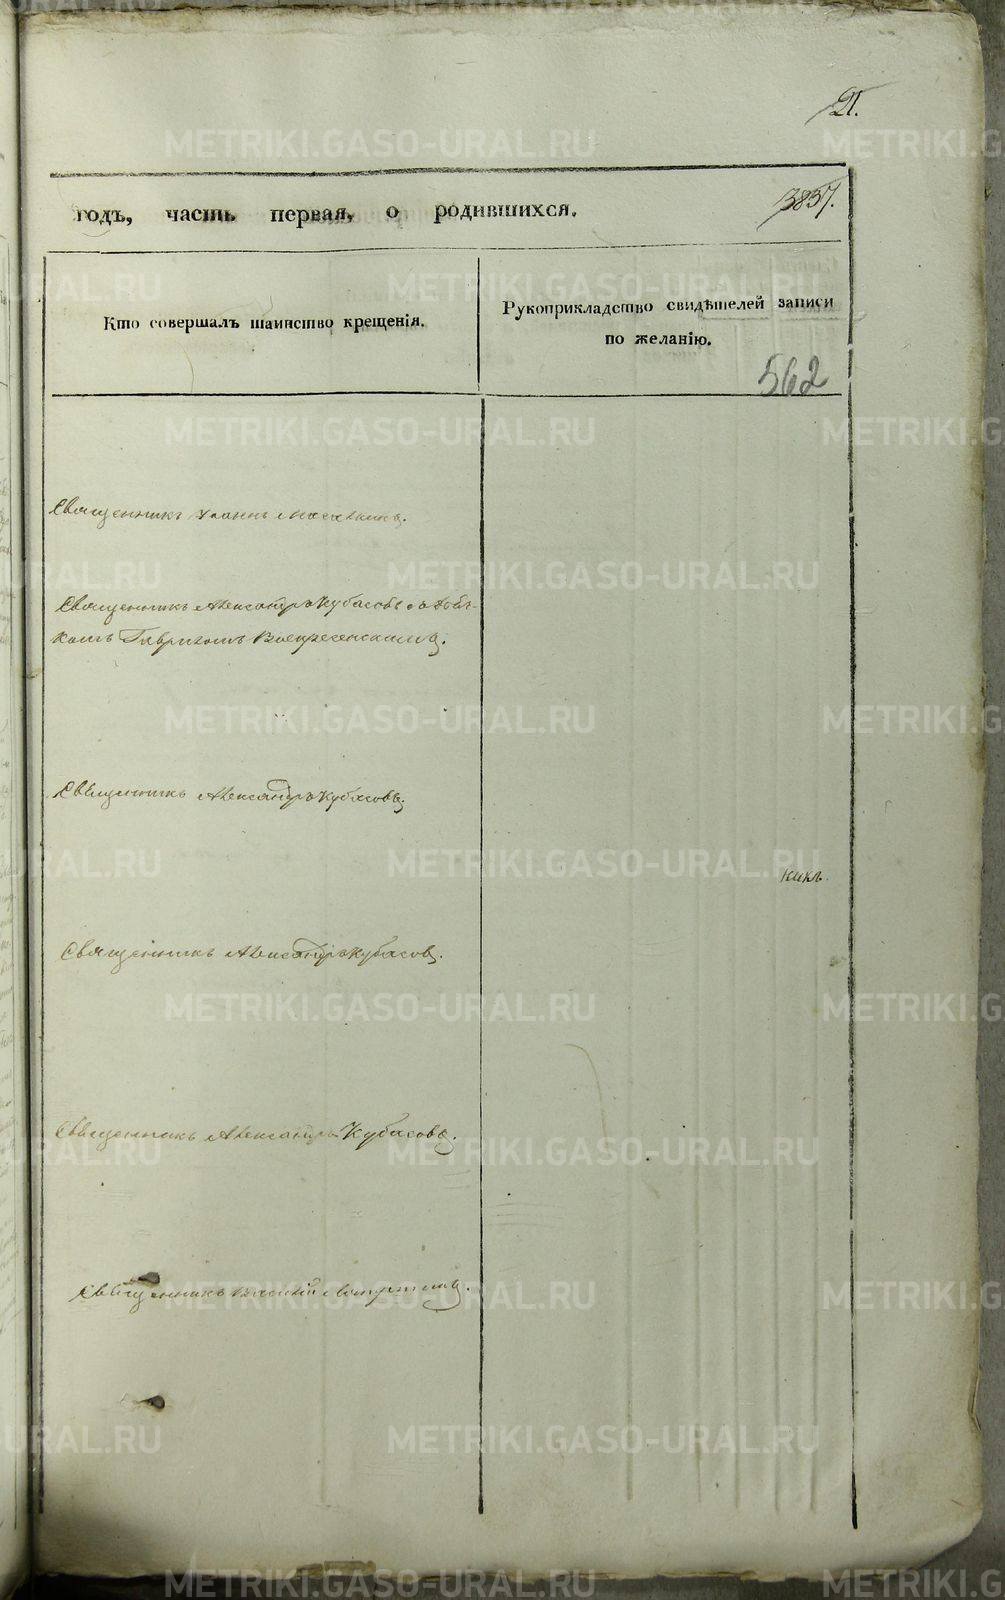 21.
годъ, часть первая, о родившихся.
3837.
Кто совершалъ таинство крещенія.
Рукоприкладство свидѣтелей записи
по желанію.
562
Священникъ Іоаннъ
Священникъ Александръ Кубасовъ съ дьяч-
комъ Воскресенскимъ.
Священникъ Александръ Кубасовъ.
Священникъ Александръ Кубасовъ.
Священникъ Александръ Кубасовъ.
Священникъ Василій
METRIKI.GASO-URAL.RU